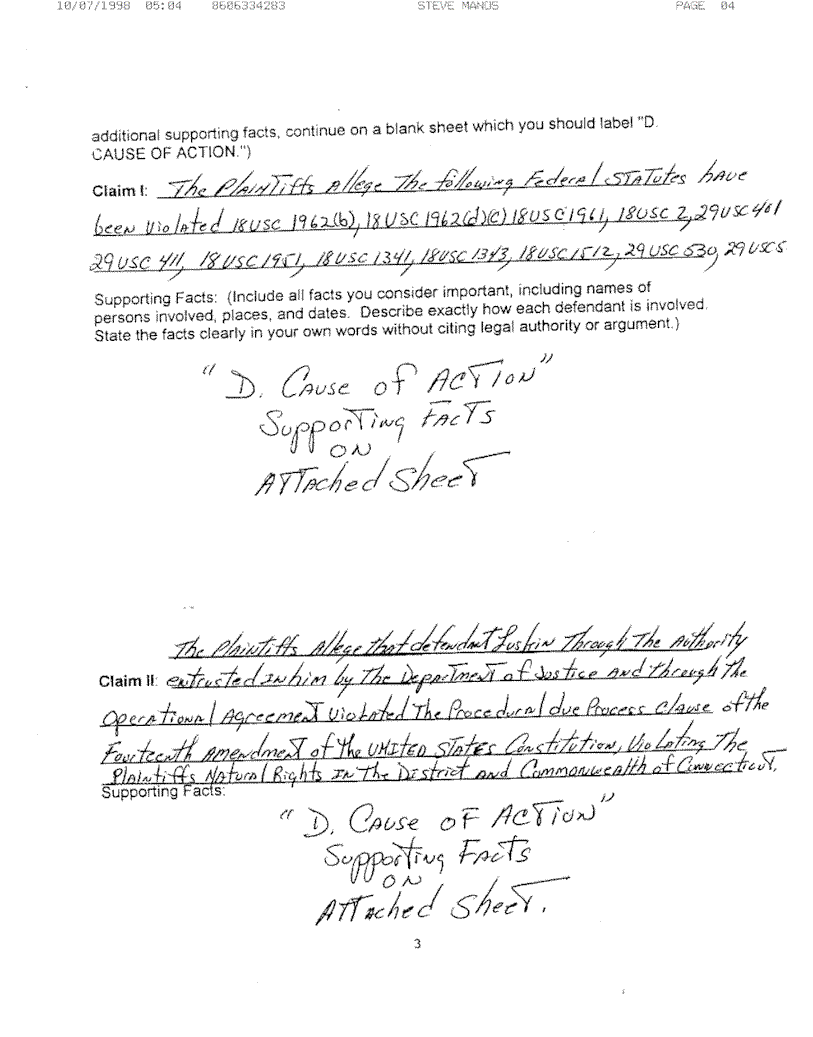 10/07/1998 05:04 8606334283 STEVE MANOS PAGE 04
additional supporting facts, continue on a blank sheet which you should label "D.
CAUSE OF ACTION.")
Claim I: The Plaintiffs Allege The following Federal Statutes have
been violated 18 USC 1962(b), 18 USC 1962(d)(c) 18 USC 1961, 18 USC 2, 29 USC 461
29 USC 411, 18 USC 1951, 18 USC 1341, 18 USC 1343, 18 USC 1512, 29 USC 530, 29 USC 5
Supporting Facts: (Include all facts you consider important, including names of
persons involved, places, and dates. Describe exactly how each defendant is involved.
State the facts clearly in your own words without citing legal authority or argument.)
"D. Cause of Action"
Supporting Facts
ON
Attached Sheet
The Plaintiffs Allege that defendant Luskin Through The Authority
Claim II: entrusted IN him by The Department of Justice And through The
Operational Agreement Violated The Procedural due Process Clause of the
Fourteenth Amendment of the UNITED STATES Constitution, Violating The
Plaintiffs Natural Rights In The District and Commonwealth of Connecticut.
Supporting Facts:
"D. Cause of Action"
Supporting Facts
ON
Attached Sheet.
3